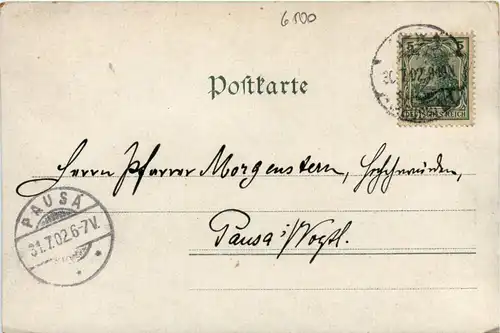 6100
5 5
30.7.02
DEUTSCHES REICH
Postkarte
Herrn Pfarrer Morgenstern, Hochehrwürden,
PAUSA
31.7.02 6-7V.
Pausa i/Vogtl.